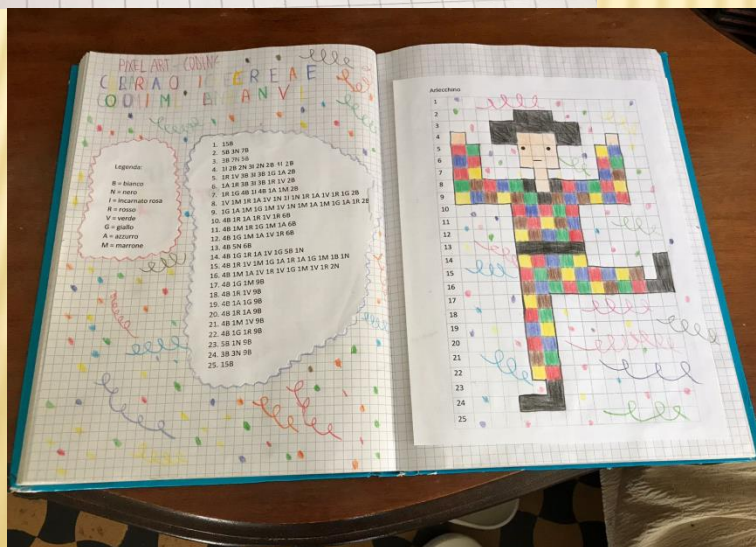 PIXEL ART - CODING
Legenda:
B = bianco
N = nero
I = incarnato rosa
R = rosso
V = verde
G = giallo
A = azzurro
M = marrone
1. 15B
2. 5B 3N 7B
3. 3B 7N 5B
4. 1I 2B 2N 3I 2N 2B 1I 2B
5. 1R 1V 3B 3I 3B 1G 1A 2B
6. 1A 1R 3B 3I 3B 1R 1V 2B
7. 1R 1G 4B 1I 4B 1A 1M 2B
8. 1V 1M 1R 1A 1V 1N 1I 1N 1R 1A 1V 1R 1G 2B
9. 1G 1A 1M 1G 1M 1V 1N 1M 1A 1M 1G 1A 1R 2B
10. 4B 1R 1A 1R 1V 1R 6B
11. 4B 1M 1R 2G 1M 1A 6B
12. 4B 1G 1M 1A 1V 1R 6B
13. 4B 5N 6B
14. 4B 1G 1R 1A 1V 1G 5B 1N
15. 4B 1R 1V 1M 1G 1A 1R 1A 1G 1M 1B 1N
16. 4B 1M 1A 1V 1R 1V 1G 1M 1V 1R 2N
17. 4B 1G 1M 9B
18. 4B 1R 1V 9B
19. 4B 1A 1G 9B
20. 4B 1R 1A 9B
21. 4B 1M 1V 9B
22. 4B 1G 1R 9B
23. 5B 1N 9B
24. 3B 3N 9B
25. 15B
Arlecchino
1
2
3
4
5
6
7
8
9
10
11
12
13
14
15
16
17
18
19
20
21
22
23
24
25